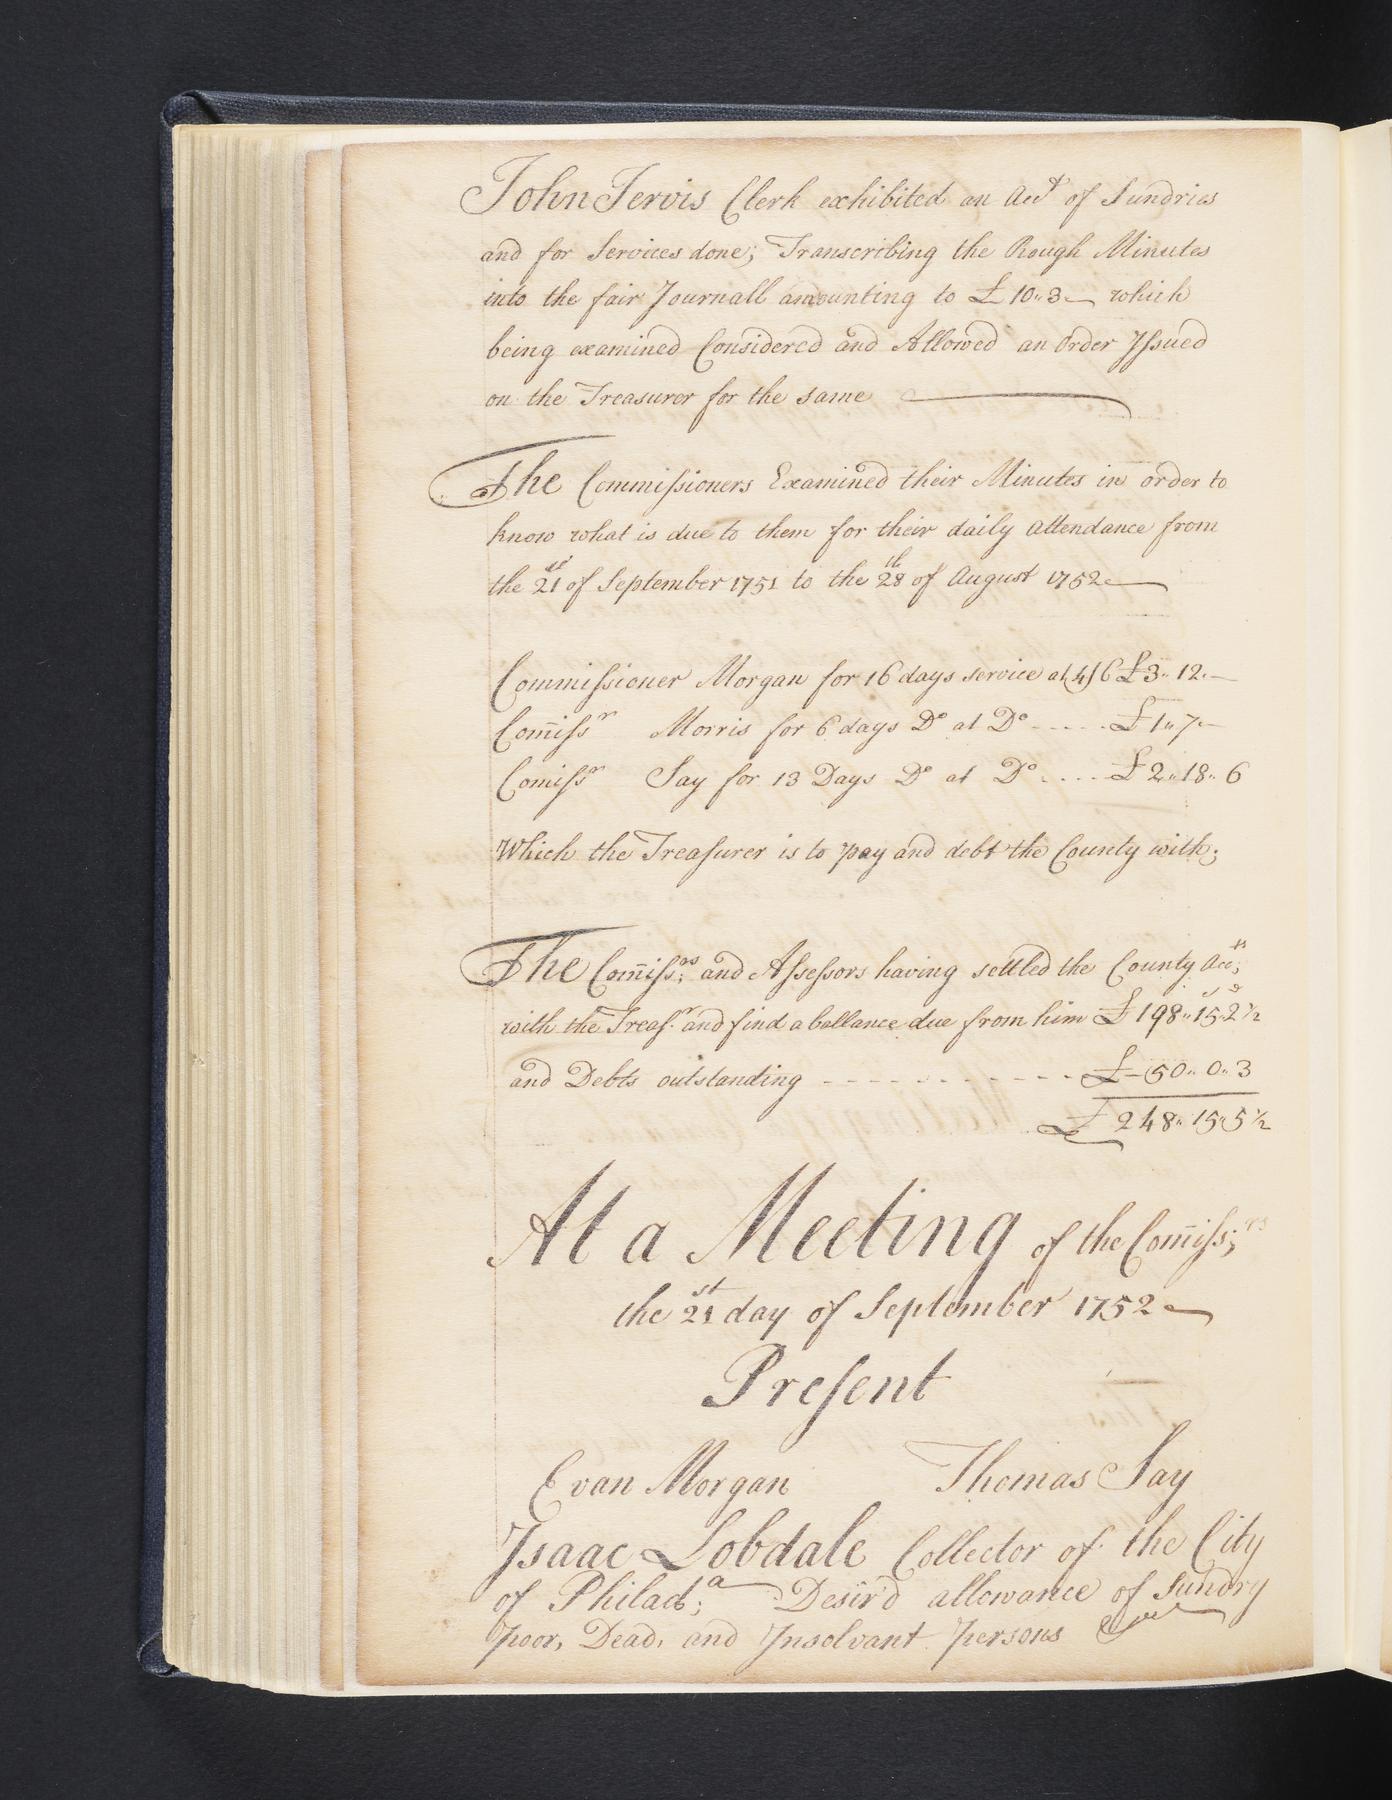 John Jervis Clerk exhibited an Acct of Sundries
and for Services done; Transcribing the Rough Minutes
into the fair Journall amounting to £ 10„3— which
being examined Considered and Allowed an Order Issued
on the Treasurer for the same
The Commissioners Examined their Minutes in order to
know what is due to them for their daily attendance from
the 21st of September 1751 to the 28th of August 1752
Commissioner Morgan for 16 days service at 4/6 £3„12„—
Comissr Morris for 6 days Do at Do ----- £1„7—
Comissr Say for 13 Days Do at Do .... £2„18„6
Which the Treasurer is to pay and debt the County with;
The Comiss;rs and Assessors having settled the County Acc;ts
with the Treas.r and find a ballance due from him £198„15„2½
and Debts outstanding ----------- £—50„0„3
£ 248„15„5½
At a Meeting of the Comiss;rs
the 21st day of September 1752
Present
Evan Morgan Thomas Say
Isaac Lobdale Collector of the City
of Philad;a Desir'd allowance of Sundry
poor, Dead, and Insolvant persons